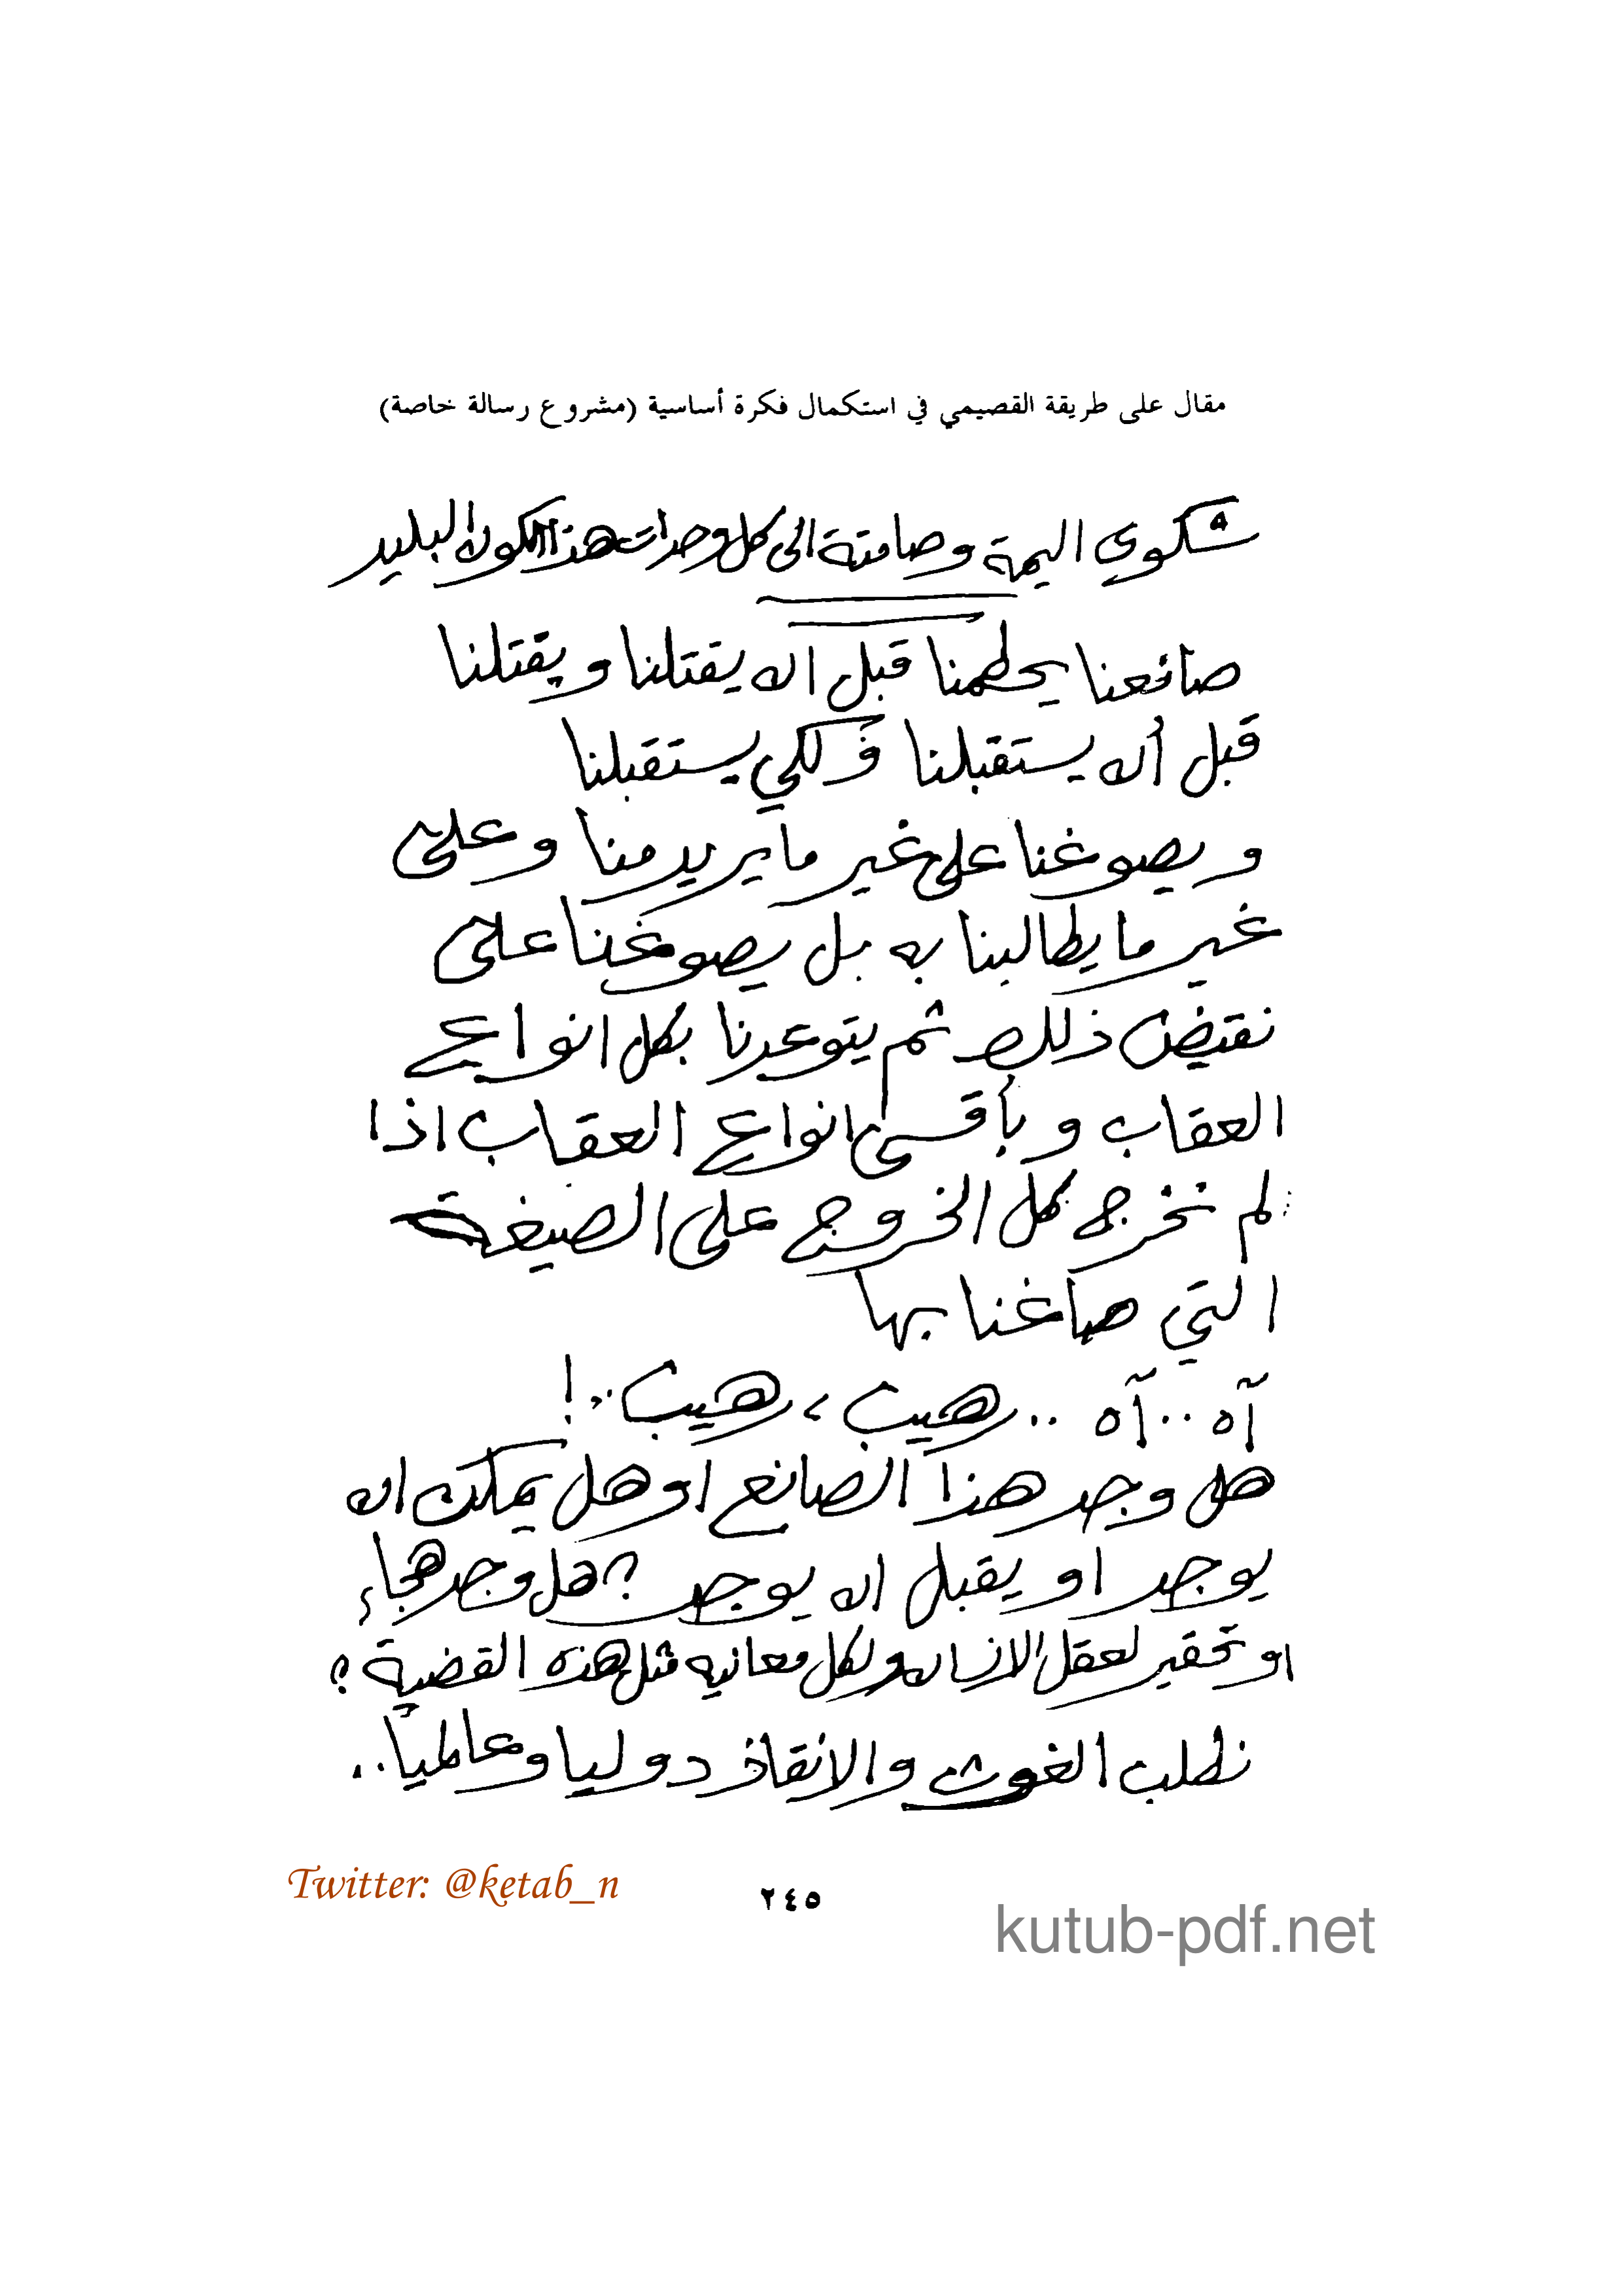 مقال على طريقة القصيمي في استكمال فكرة أساسية (مشروع رسالة خاصة)
شكوى اليمة وصامتة الى كل وحدات هذا الكون البليد
صانعنا يحطمنا قبل ان يقتلنا ويقتلنا
قبل أن يستقبلنا ولكي يستقبلنا
ويصوغنا على غير ما يريد منا وعلى
غير ما يطالبنا به بل يصوغنا على
نقيض ذلك ثم يتوعدنا بكل انواع
العقاب وبأقسى انواع العقاب اذا
لم نخرج كل الخروج على الصيغة
التي صاغنا بها
آه .. آه .. رهيب، رهيب..!
هل وجد هذا الصانع او هل يمكن ان
يوجد او يقبل ان يوجد ؟ هل وجد هجاء
او تحقير لعقل الانسان ولكل معانيه مثل هذه القضية ؟
نطلب الغوث والانقاذ دوليا وعالمياً..
Twitter: @ketab_n
٢٤٥
kutub-pdf.net